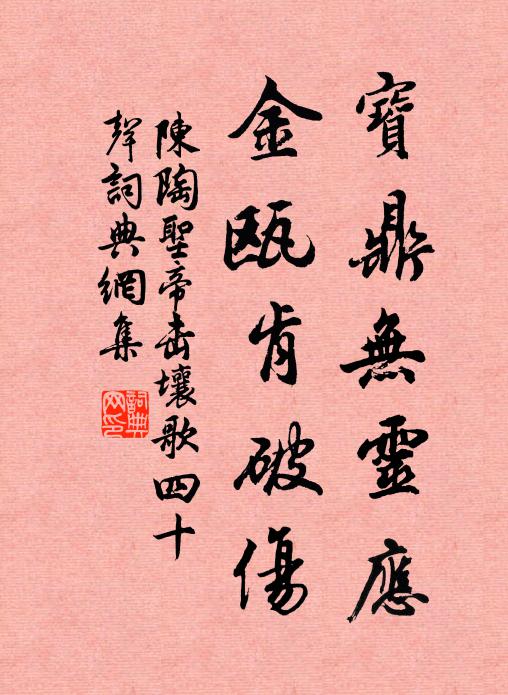 寶鼎無靈應
金甌肯破傷
陳陶聖帝击壤歌四十
聲詞典網集
詞典
网印